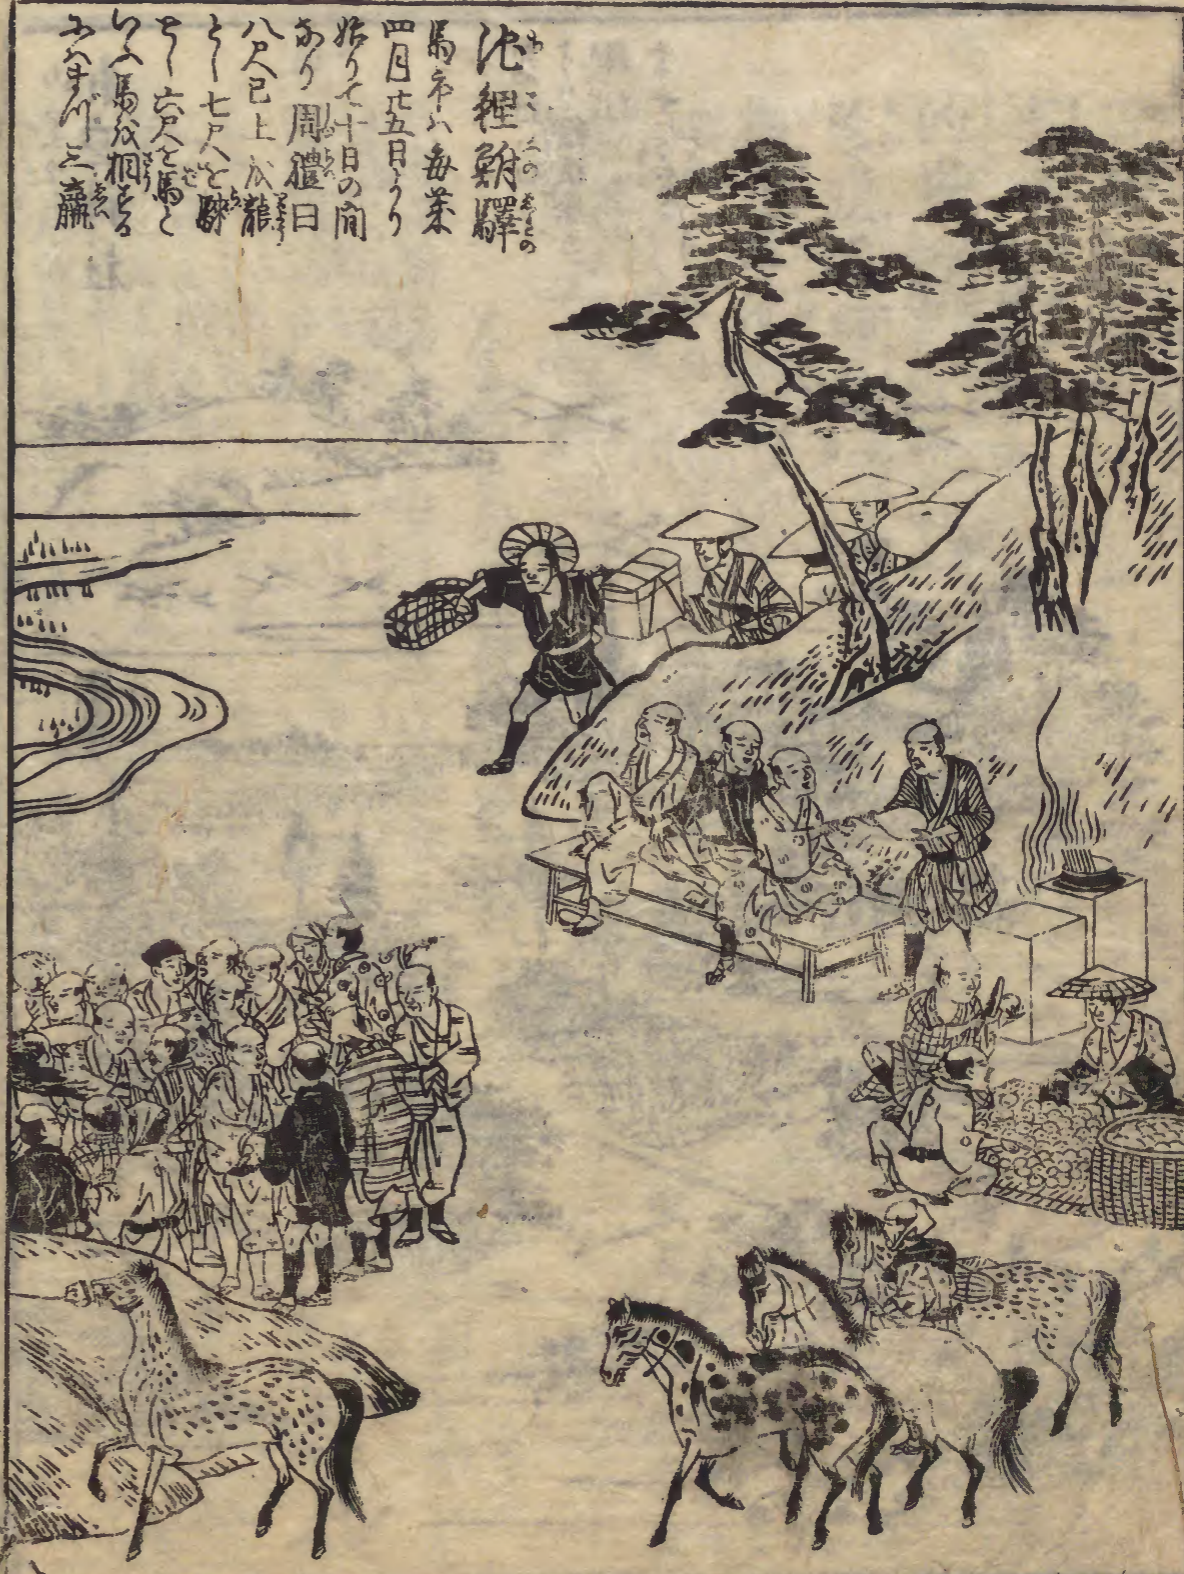 池鯉鮒驛
馬市ハ毎歳
四月廿五日より
始りて十日の間
なり周禮曰
八尺已上を龍
とし七尺を騋
とし六尺を馬と
いふ馬を相する
にハまづ三羸